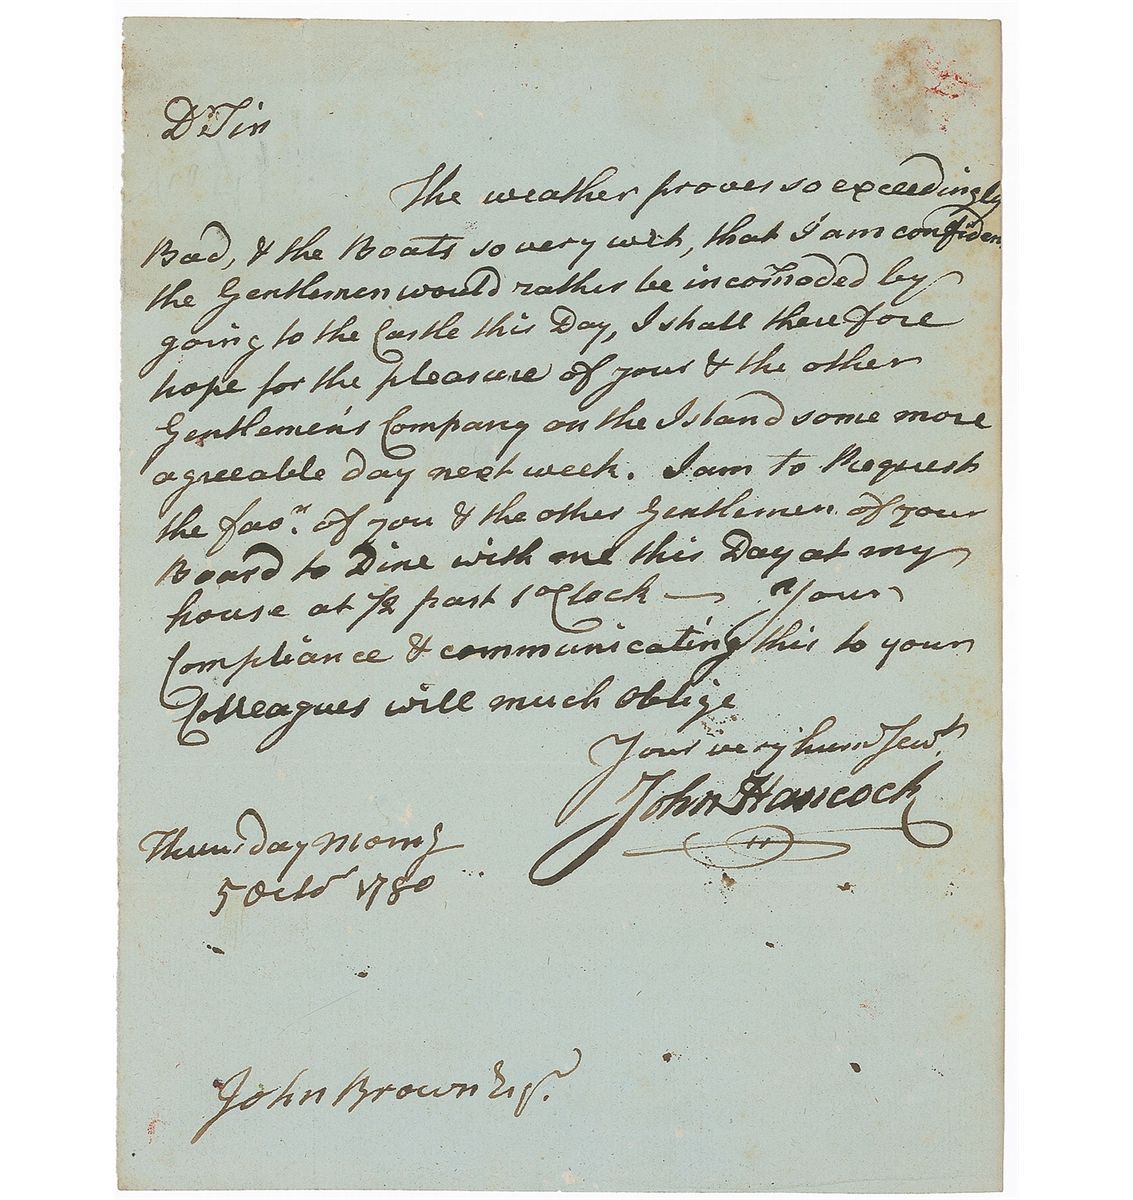 Dr Sir
The weather proves so exceedingly
Bad, & the Boats so very wet, that I am confiden
the Gentlemen would rather be incommoded by
going to the Castle this Day, I shall therefore
hope for the pleasure of your & the other
Gentlemen's Company on the Island some more
agreeable day next week. I am to Request
the favr. of you & the other Gentlemen of your
Board to Dine with me this Day at my
house at 1/2 past 1 o'Clock — Your
Compliance & communicating this to your
Colleagues will much oblige
Your very hum Servt.
John Hancock
Thursday Morng
5 Octor 1780
John Brown Esqr.